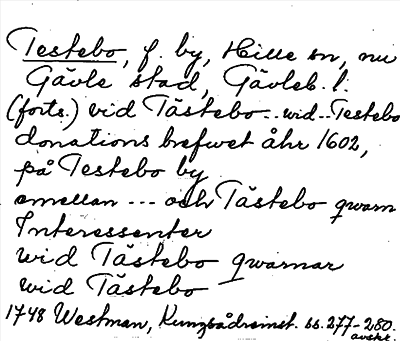 Testebo, f. by, Hille sn, nu
Gävle stad, Gävleb. l.
(forts.) vid Tästebo .. wid .. Testebo
donations brefwet åhr 1602,
på Testebo by
emellan --- och Tästebo qwarn
Interessenter
wid Tästebo qwarnar
wid Tästebo
1748 Westman, Kungsådreinst. ss. 277-280.
avskr.